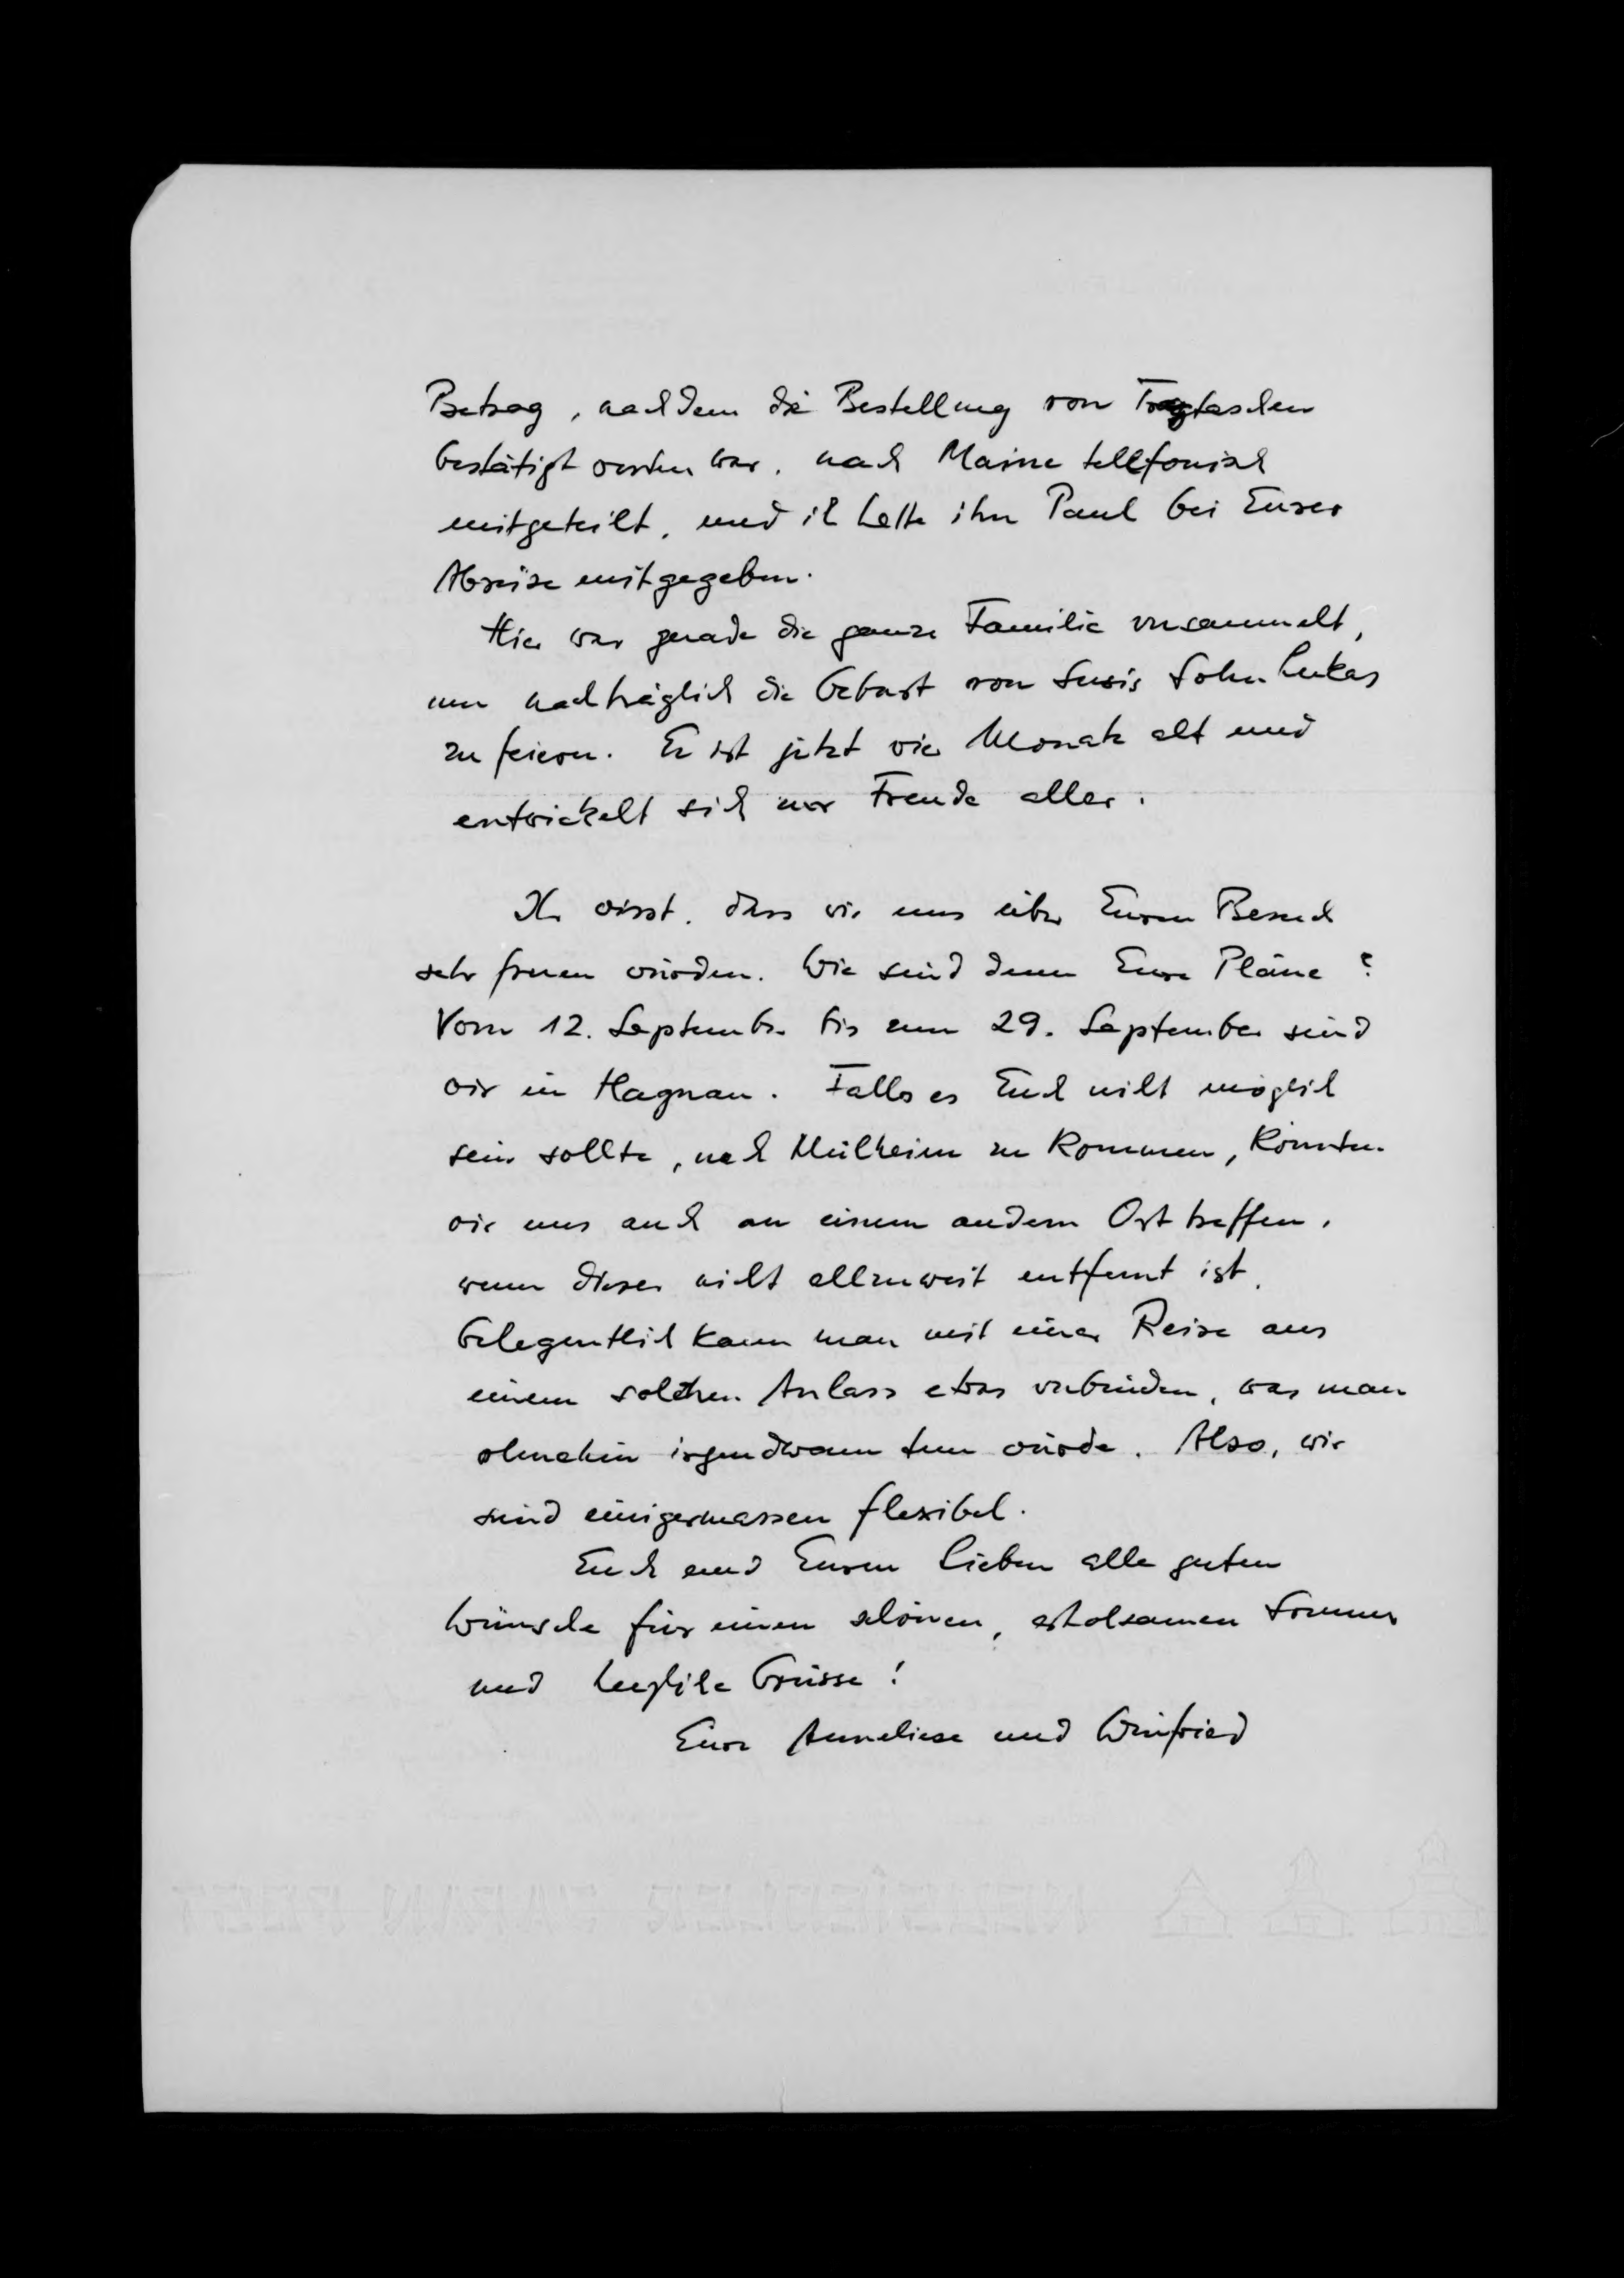 Betrag, nachdem die Bestellung von Tragtaschen
bestätigt worden war, nach Maine tellfonisch
mitgeteilt, und ich hatte ihn Paul bei Eurer
Abreise mitgegeben.
Hier war gerade die ganze Familie versammelt,
um nachträglich die Geburt von Susis Sohn Lukas
zu feiern. Er ist jetzt vier Monate alt und
entwickelt sich zur Freude aller.
Ihr wisst, dass wir uns über Euren Besuch
sehr freuen würden. Wie sind denn Eure Pläne?
Vom 12. September bis zum 29. September sind
wir in Hagnau. Falls es Euch nicht möglich
sein sollte, nach Mülheim zu kommen, könnten
wir uns auch an einem andern Ort treffen,
wenn dieser nicht allzuweit entfernt ist.
Gelegentlich kann man mit einer Reise aus
einem solchen Anlass etwas verbinden, was man
ohnehin irgendwann tun würde. Also, wir
sind einigermassen flexibel.
Euch und Euren Lieben alle guten
Wünsche für einen schönen, erholsamen Sommer
und herzliche Grüsse!
Eure Anneliese und Winfried